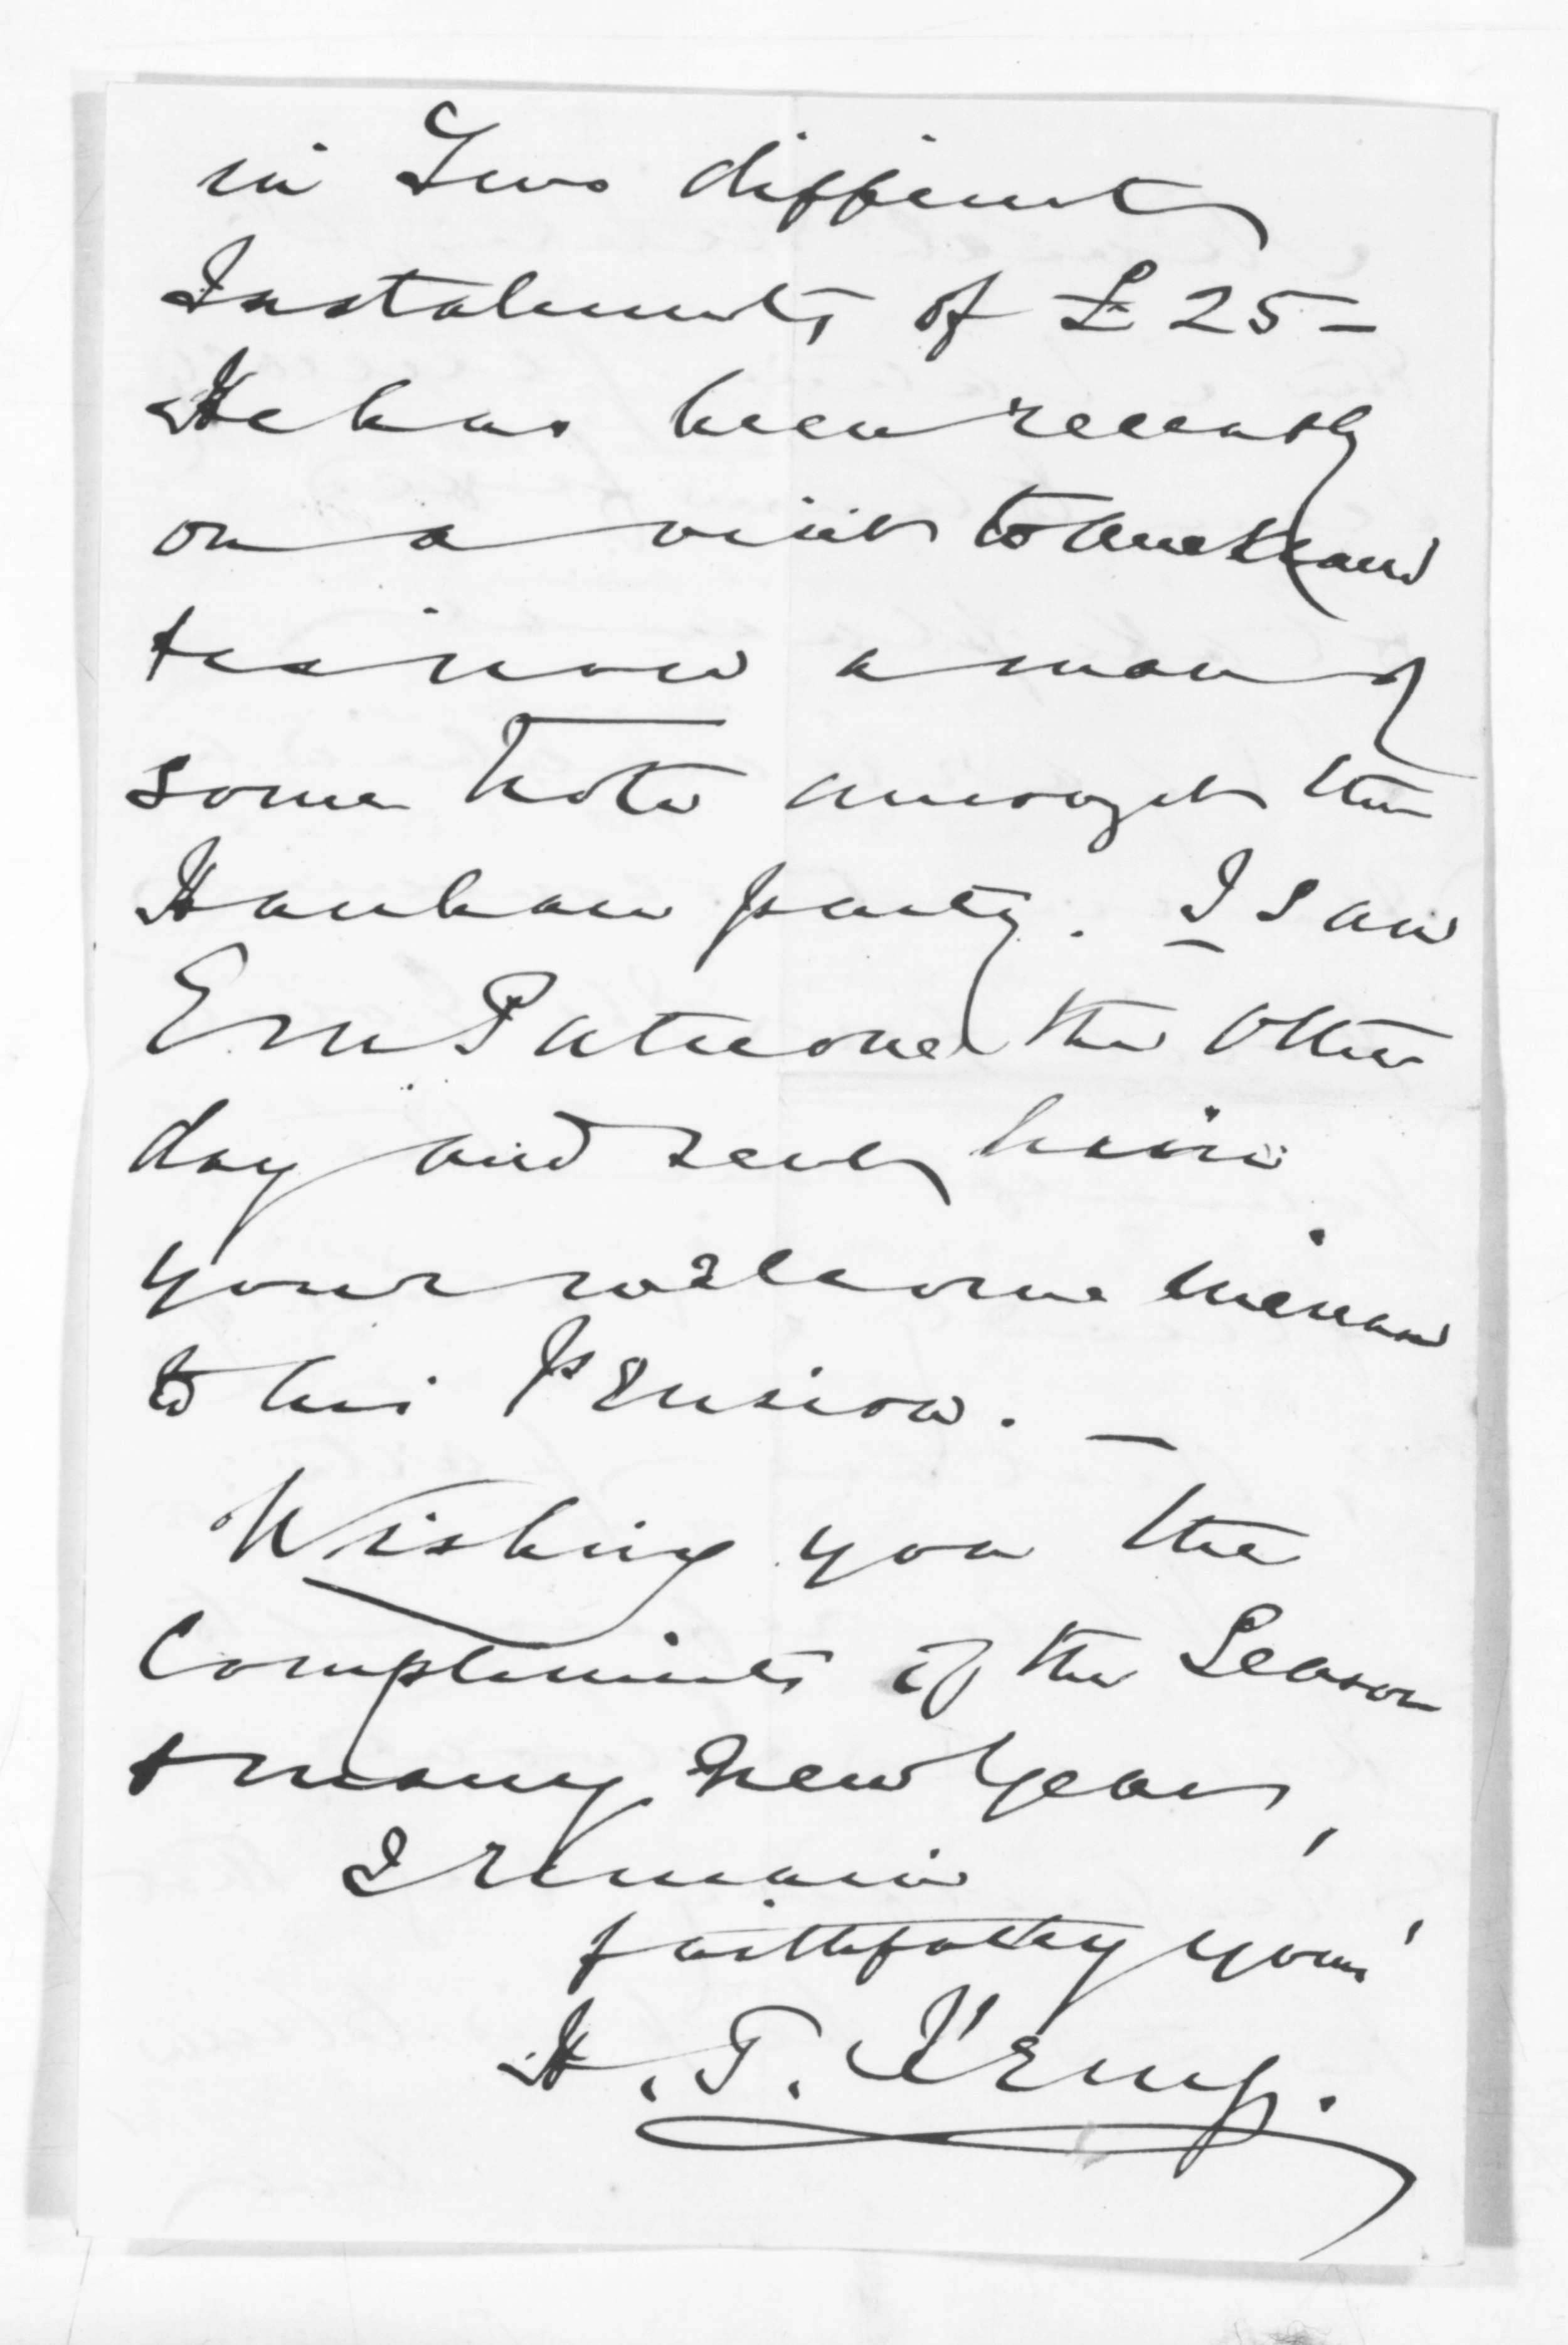 in Two different
Instalments of £25 –
He has been recently
on a visit to Auckland
& is now a man of
some note amongst the
Hauhau party. I saw
Em Patuone the other
day and sent him
your welcome increase
to his Pension. –
Wishing you the
Compliments of the Season
& many New Years,
I remain
faithfully yours
H. T. Kemp.